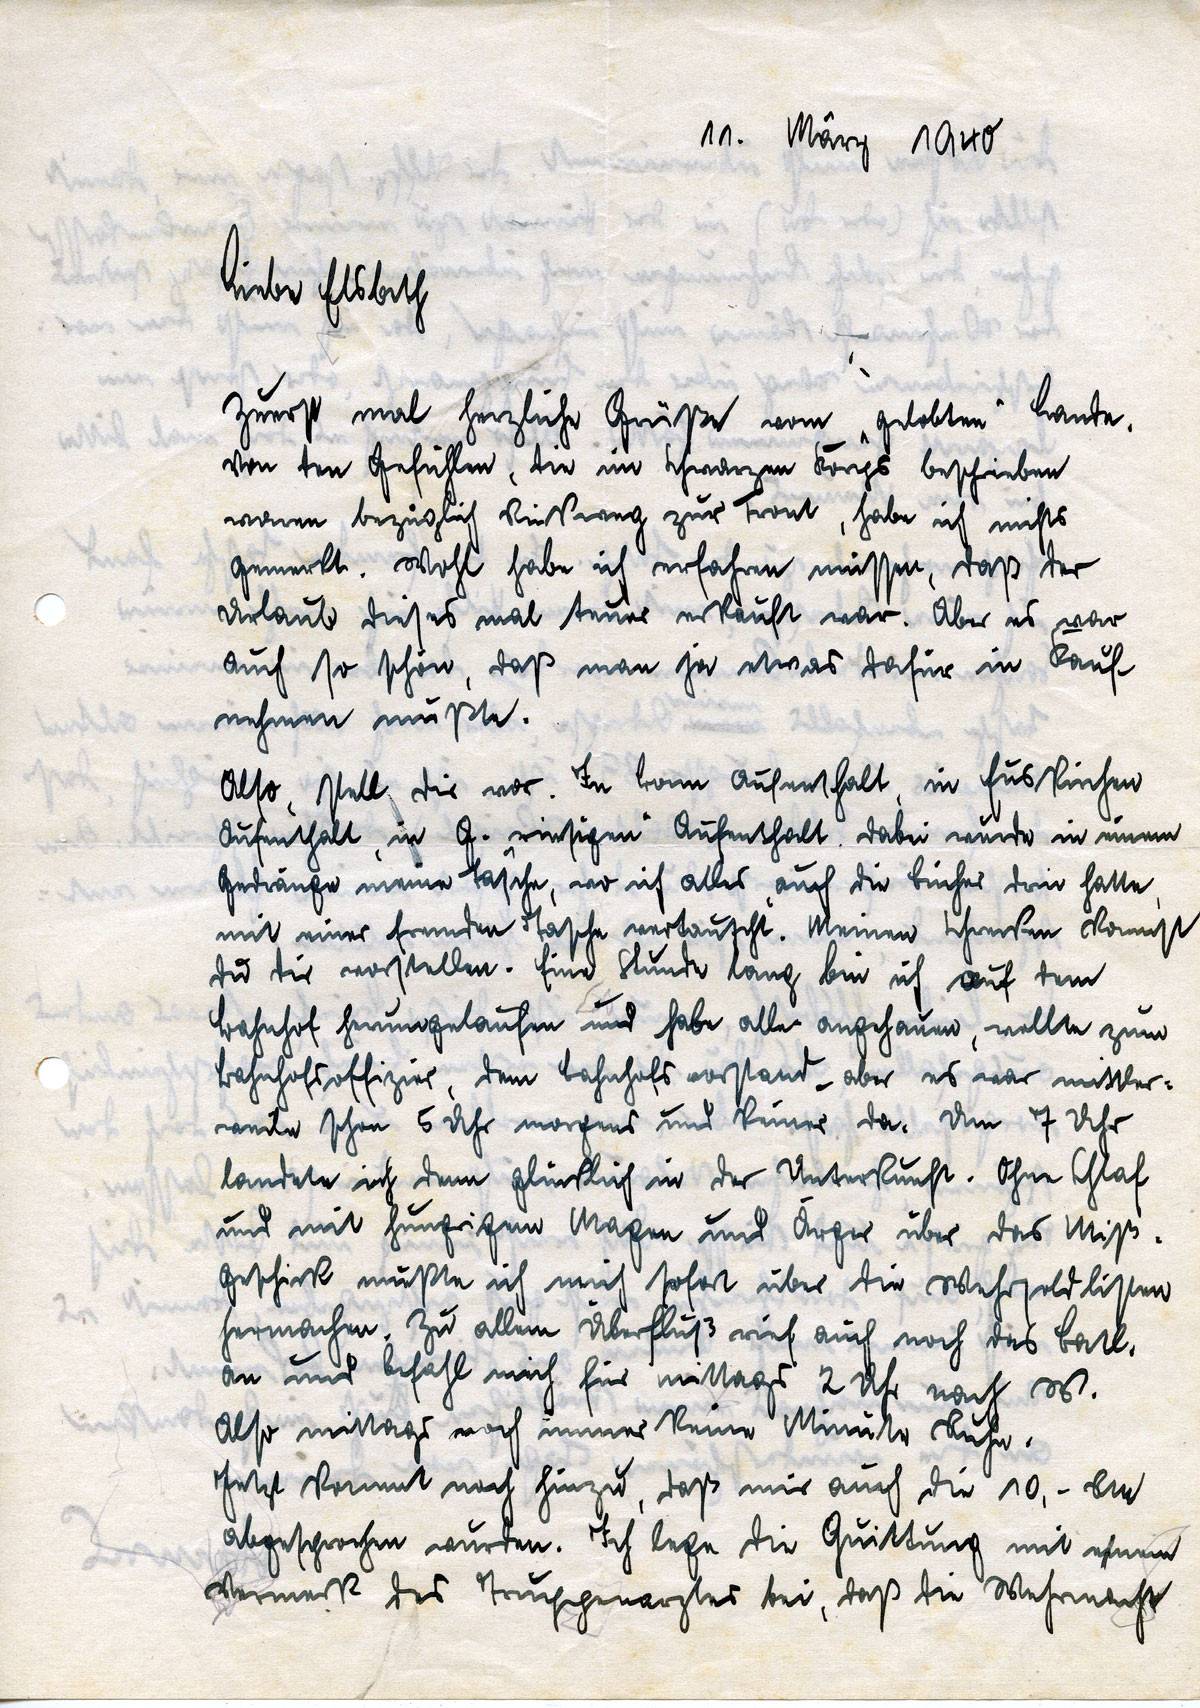 11. März 1940
Liebe Elsbeth
Zuerst mal herzliche Grüße vom „gelobten" Lande.
Von den Gefühlen, die im Schwarzen Korps beschrieben
waren bezüglich Rückweg zur Front, habe ich nichts
gemerkt. Wohl habe ich erfahren müssen, daß der
Urlaub dieses mal teuer erkauft war. Aber es war
auch so schön, daß man ja etwas dafür in Kauf
nehmen mußte.
Also, stell dir vor. In Bonn Aufenthalt, in Euskirchen
Aufenthalt, in G. „riesigen" Aufenthalt. Dabei wurde in einem
Gedränge meine Tasche, wo ich alles, auch die Bücher drin hatte,
mit einer fremden Tasche vertauscht. Meinen Schrecken kannst
du dir vorstellen. Eine Stunde lang bin ich auf dem
Bahnhof herumgelaufen und habe alle angehauen, wollte zum
Bahnhofsoffizier, dem Bahnhofsvorstand – aber es war mittler=
weile schon 5 Uhr morgens und keiner da. Um 7 Uhr
landete ich dann glücklich in der Unterkunft. Ohne Schlaf
und mit hungrigem Magen und Ärger über das Miß-
geschick mußte ich mich sofort über die Wehrsoldlisten
hermachen. Zu allem Überfluß rief auch noch das Batl.
an und befahl mich für mittags 2 Uhr nach W.
Also mittags noch immer keine Minute Ruhe.
Jetzt kommt noch hinzu, daß mir auch die 10,-
abgesprochen wurden. Ich lege die Quittung mit einem
Vermerk des Truppenarztes bei, daß die Wehrmacht